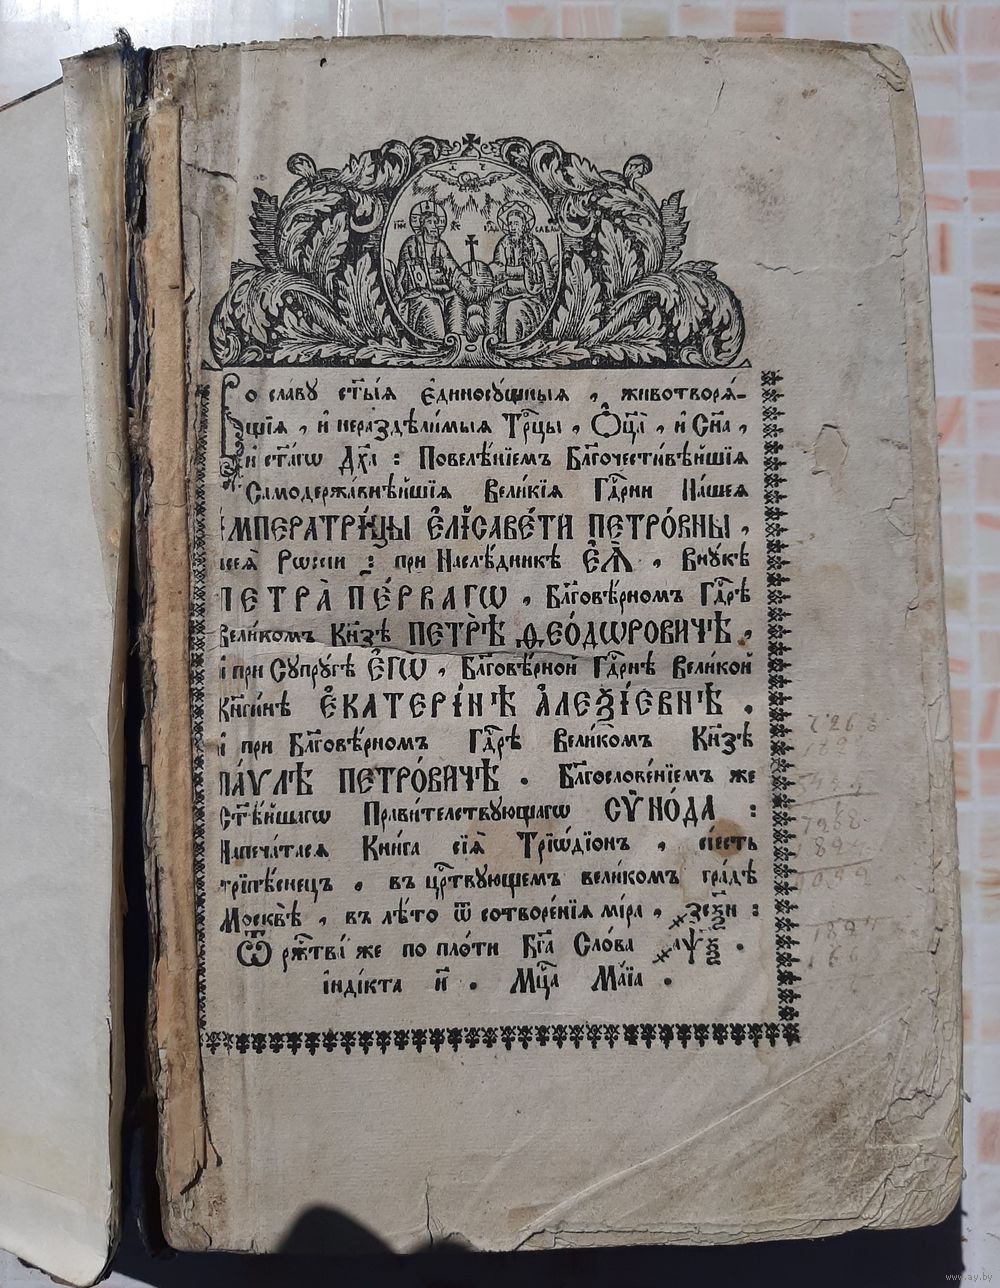 Во сла́ву ст҃ы́ѧ є҆диносꙋ́щныѧ , животворѧ́-
щїѧ , и҆ нераздѣли́мыѧ Трⷪ҇цы , Ѻ҆ц҃а̀ , и҆ Сн҃а ,
и҆ ст҃а́гѡ Дх҃а : Повелѣ́нїемъ Бл҃гочести́вѣйшїѧ
Самодержа́внѣйшїѧ Вели́кїѧ Гдⷭ҇рни На́шеѧ
И҆МПЕРАТРИ́ЦЫ Є҆ЛІСАВЕ́ТИ ПЕТРО́ВНЫ ,
всеѧ̀ Рѡссі́и : при Наслѣ́дникѣ Є҆Ѧ̀ , Внꙋ́кѣ
ПЕТРА̀ ПЕ́РВАГѠ , Бл҃говѣ́рномъ Гдⷭ҇рѣ
Вели́комъ Кн҃зѣ ПЕТРѢ̀ Ѳ҆ЕО́ДѠРОВИЧѢ ,
и҆ при Сꙋпрꙋ́гѣ Є҆ГѠ̀ , Бл҃говѣ́рной Гдⷭ҇рнѣ Вели́кой
Кн҃ги́нѣ Є҆КАТЕРІ́НѢ А҆ЛЕѮІ́ЕВНѢ .
и҆ при Бл҃говѣ́рномъ Гдⷭ҇рѣ Вели́комъ Кн҃зѣ
ПА́ѴЛѢ ПЕТРО́ВИЧѢ . Бл҃гослове́нїемъ же
Ст҃ѣ́йшагѡ Прави́телствꙋющагѡ СѴНО́ДА :
Напеча́тасѧ Кни́га сїѧ̀ Трїѡ́дїонъ , сі́есть
трїпѣ́снецъ , въ црⷭ҇твꙋющемъ вели́комъ гра́дѣ
Москвѣ̀ , въ лѣ́то ѿ сотворе́нїѧ мі́ра ,
Ѿ рж҃тва́ же по пло́ти Бг҃а Сло́ва
і҆нді́кта и҃ . Мц҃а Ма́їа .
www.ay.by